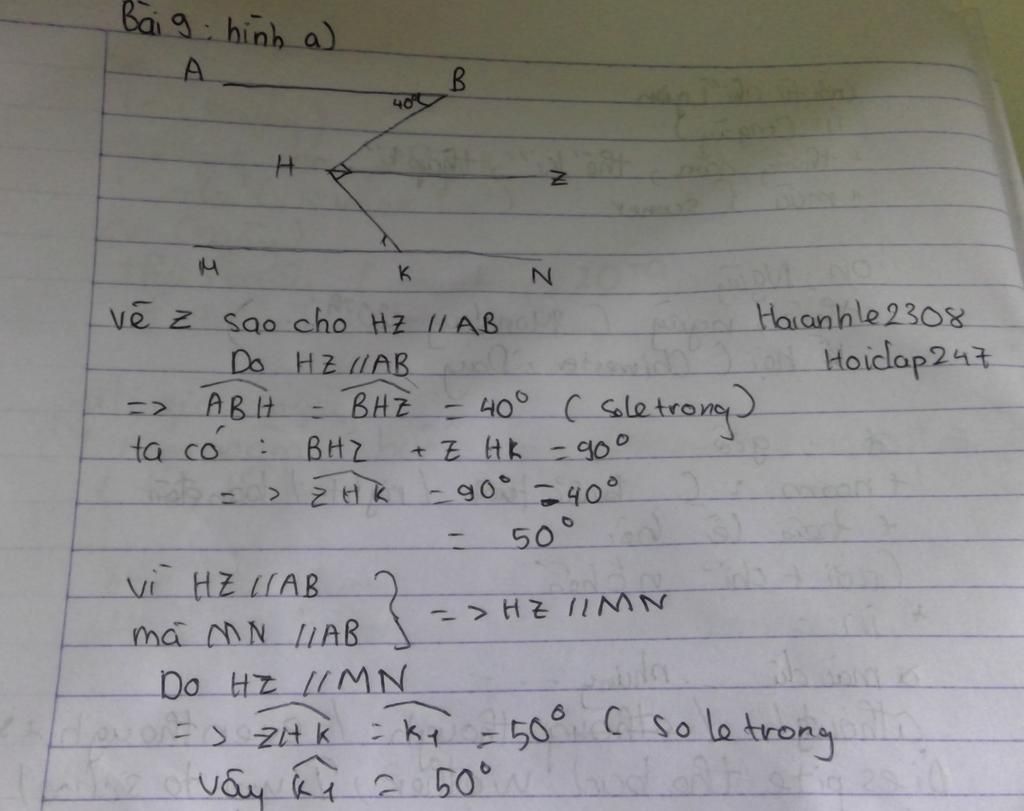 Bài 9: hình a)
A
B
40°
H
Z
1
M
K
N
vẽ Z sao cho HZ // AB
Haianhle2308
Do HZ // AB
Hoidap247
=> ABH = BHZ = 40° (so le trong)
ta có : BHZ + Z HK = 90°
=> ZHK = 90° - 40°
= 50°
vì HZ // AB
mà MN // AB
=> HZ // MN
Do HZ // MN
=> ZHK = K1 = 50° ( so le trong
vây K1 = 50°